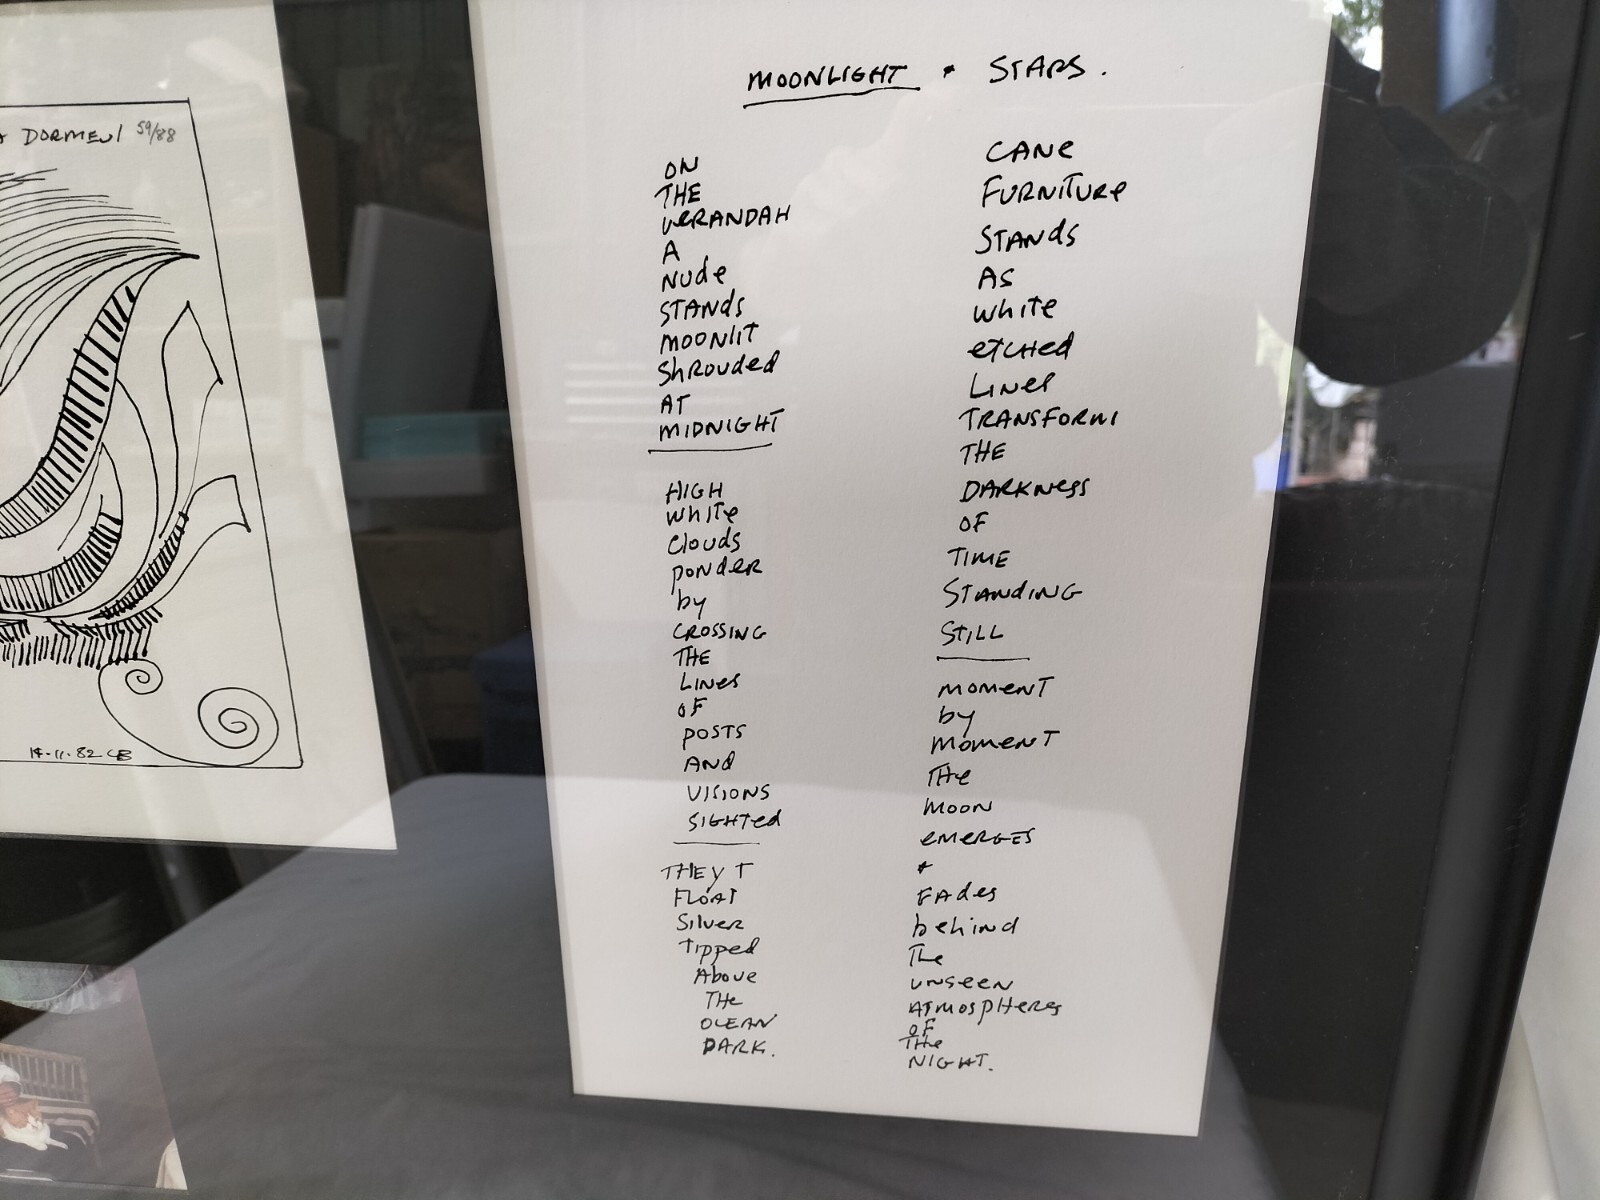 DORMEUI 59/88
14.11.82 CB
MOONLIGHT & STARS.
ON
THE
VERANDAH
A
NUde
STANds
MOONLIT
ShROUded
AT
MIDNIGHT
HIGH
White
Clouds
PONdER
by
CROSSING
THE
LINes
OF
POSTS
AND
VISIONS
SIGHTed
THEY
FLOAT
SilveR
Tipped
Above
THe
OCEAN
DARK.
CANe
FURNITURe
STANds
AS
White
eTCHed
LINes
TRANSFORM
THE
DARKNess
OF
TIME
STANdING
STILL
MOMeNT
by
MOMeNT
THe
MOON
eMeRGES
&
FAdes
behiNd
The
UNSEEN
ATMOSpHeRes
OF
THe
NIGHT.